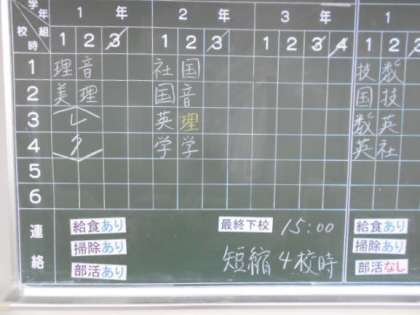 学年 組 校時 1年 2年 3年 1
1 2 3 1 2 3 1 2 3 4 1 2
1 理 音 社 国 技 数
2 美 理 国 音 国 技
3 レ 英 理 数 英
4 ク 学 学 英 社
5
6
連絡
給食あり 最終下校 15:00 給食あり
掃除あり 短縮4校時 掃除あり
部活あり 部活なし